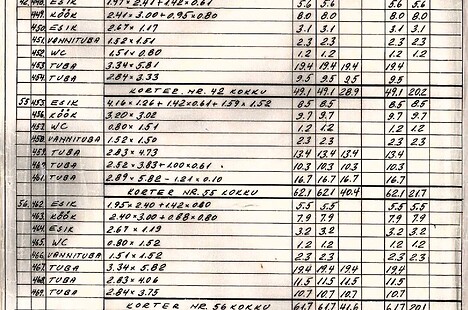 42. 448. ESIK 1.97 × 2.41 + 1.42 × 0.61 5.6 5.6 5.6 5.6
449. KÖÖK 2.41 × 3.00 + 0.95 × 0.80 8.0 8.0 8.0 8.0
450. ESIK 2.67 × 1.17 3.1 3.1 3.1 3.1
451. VANNITUBA 1.52 × 1.51 2.3 2.3 2.3 2.3
452. WC 1.51 × 0.80 1.2 1.2 1.2 1.2
453. TUBA 3.34 × 5.81 19.4 19.4 19.4 19.4
454. TUBA 2.84 × 3.33 9.5 9.5 9.5 9.5
KORTER NR. 42 KOKKU 49.1 49.1 28.9 49.1 20.2
55 455. ESIK 4.16 × 1.26 + 1.42 × 0.61 + 1.59 × 1.52 8.5 8.5 8.5 8.5
456. KÖÖK 3.20 × 3.02 9.7 9.7 9.7 9.7
457. WC 0.80 × 1.51 1.2 1.2 1.2 1.2
458. VANNITUBA 1.52 × 1.50 2.3 2.3 2.3 2.3
459. TUBA 2.83 × 4.73 13.4 13.4 13.4 13.4
460. TUBA 2.52 × 3.83 + 1.00 × 0.61 10.3 10.3 10.3 10.3
461. TUBA 2.89 × 5.82 - 1.21 × 0.10 16.7 16.7 16.7 16.7
KORTER NR. 55 KOKKU 62.1 62.1 40.4 62.1 21.7
56. 462. ESIK 1.95 × 2.40 + 1.42 × 0.60 5.5 5.5 5.5 5.5
463. KÖÖK 2.40 × 3.00 + 0.88 × 0.80 7.9 7.9 7.9 7.9
464. ESIK 2.67 × 1.19 3.2 3.2 3.2 3.2
465. WC 0.80 × 1.52 1.2 1.2 1.2 1.2
466. VANNITUBA 1.51 × 1.52 2.3 2.3 2.3 2.3
467. TUBA 3.34 × 5.82 19.4 19.4 19.4 19.4
468. TUBA 2.83 × 4.06 11.5 11.5 11.5 11.5
469. TUBA 2.84 × 3.75 10.7 10.7 10.7 10.7
KORTER NR. 56 KOKKU 61.7 61.7 41.6 61.7 20.1